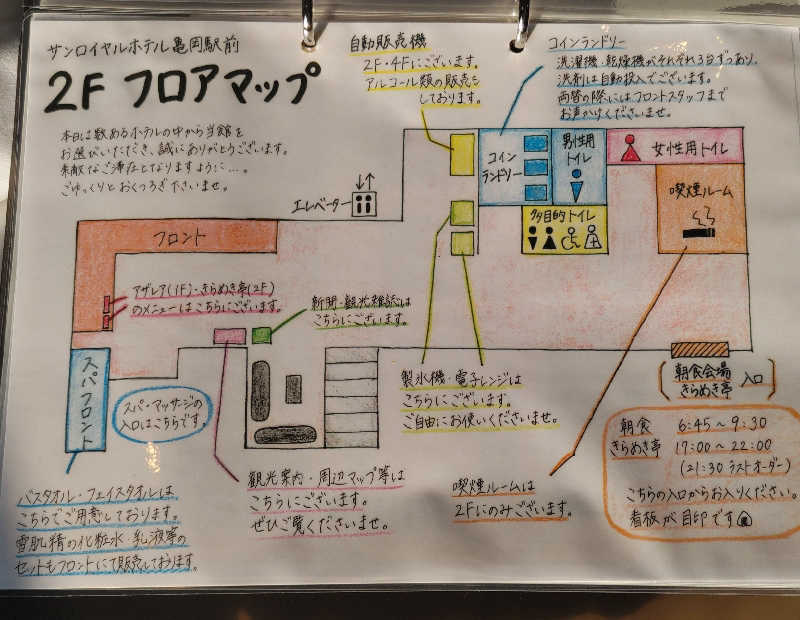 サンロイヤルホテル亀岡駅前
2F フロアマップ
本日は数あるホテルの中から当館を
お選びいただき、誠にありがとうございます。
素敵なご滞在となりますように…。
ごゆっくりとおくつろぎ下さいませ。
自動販売機
2F・4Fにございます。
アルコール類の販売も
しております。
コインランドリー
洗濯機・乾燥機がそれぞれ3台ずつあり、
洗剤は自動投入でございます。
両替の際にはフロントスタッフまで
お声かけくださいませ。
エレベーター
コイン
ランドリー
男性用
トイレ
女性用トイレ
多目的トイレ
喫煙ルーム
フロント
アザレア(1F)・きらめき亭(2F)
のメニューはこちらにございます。
新聞・観光雑誌は
こちらにございます。
スパフロント
スパ・マッサージの
入口はこちらです。
製氷機・電子レンジは
こちらにございます。
ご自由にお使いくださいませ。
朝食会場
きらめき亭
入口
朝食 6:45〜9:30
きらめき亭 17:00〜22:00
(21:30 ラストオーダー)
こちらの入口からお入りください。
看板が目印です
バスタオル・フェイスタオルは、
こちらでご用意しております。
雪肌精の化粧水・乳液等の
セットもフロントにて販売しております。
観光案内・周辺マップ等は
こちらにございます。
ぜひご覧くださいませ。
喫煙ルームは
2Fにのみございます。